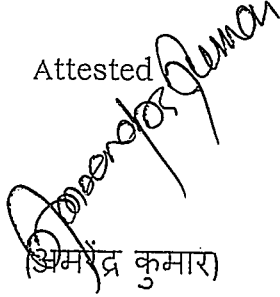 Attested
Amrendra Kumar
(अमरेंद्र कुमार)